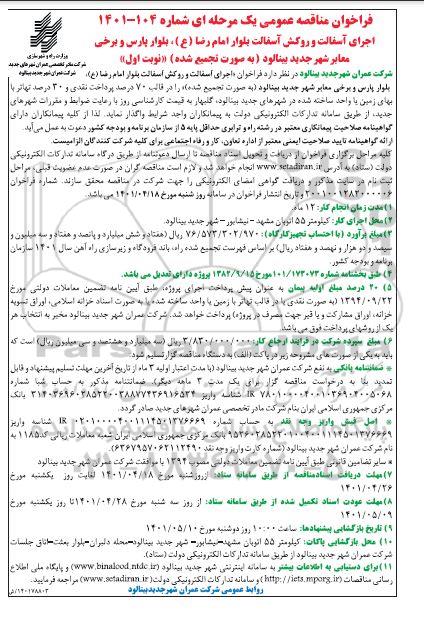 فراخوان مناقصه عمومی یک مرحله ای شماره ۱۰۴-۱۴۰۱
اجرای آسفالت و روکش آسفالت بلوار امام رضا (ع)، بلوار پارس و برخی
معابر شهر جدید بینالود (به صورت تجمیع شده) «نوبت اول»
وزارت راه و شهرسازی
شرکت مادر تخصصی عمران شهرهای جدید
شرکت عمران شهر جدید بینالود
شرکت عمران شهر جدید بینالود در نظر دارد فراخوان «اجرای آسفالت و روکش آسفالت بلوار امام رضا (ع)،
بلوار پارس و برخی معابر شهر جدید بینالود (به صورت تجمیع شده)» را در قالب ۷۰ درصد پرداخت نقدی و ۳۰ درصد تهاتر با
بهای زمین یا واحد ساخته شده در شهرهای جدید بینالود، گلبهار به قیمت کارشناسی روز با رعایت ضوابط و مقررات شهرهای
جدید، از طریق سامانه تدارکات الکترونیکی دولت به پیمانکاران واجد شرایط واگذار نماید. لذا از کلیه پیمانکاران دارای
گواهینامه صلاحیت پیمانکاری معتبر در رشته راه و ترابری حداقل پایه ۵ از سازمان برنامه و بودجه کشور دعوت به عمل می‌آید.
ارائه گواهینامه تایید صلاحیت ایمنی معتبر از اداره تعاون، کار و رفاه اجتماعی برای کلیه شرکت کنندگان الزامیست.
کلیه مراحل برگزاری فراخوان از دریافت و تحویل اسناد مناقصه تا ارسال دعوتنامه از طریق درگاه سامانه تدارکات الکترونیکی
دولت (ستاد) به آدرس www.setadiran.ir انجام خواهد شد و لازم است مناقصه گران در صورت عدم عضویت قبلی، مراحل
ثبت نام در سایت مذکور و دریافت گواهی امضای الکترونیکی را جهت شرکت در مناقصه محقق سازند. شماره فراخوان
۲۰۰۱۰۰۱۲۸۲۰۰۰۰۰۶ و تاریخ انتشار فراخوان در سامانه روز شنبه مورخ ۱۴۰۱/۰۴/۱۸ می باشد.
۱) مدت زمان انجام کار: ۱۲ ماه
۲) محل اجرای کار: کیلومتر ۵۵ اتوبان مشهد - نیشابور - شهر جدید بینالود.
۳) مبلغ برآورد (با احتساب تجهیز کارگاه): ۷۶/۵۷۳/۳۰۲/۹۷۰ ریال (هفتاد و شش میلیارد و پانصد و هفتاد و سه میلیون و
سیصد و دو هزار و نهصد و هفتاد ریال) بر اساس فهرست تجمیع شده راه، باند فرودگاه و زیرسازی راه آهن سال ۱۴۰۱ سازمان
برنامه و بودجه کشور.
۴) طبق بخشنامه شماره ۱۰۱/۱۷۳۰۷۳ مورخ ۱۳۸۲/۹/۱۵ پروژه دارای تعدیل می باشد.
۵) ۲۰ درصد مبلغ اولیه پیمان به عنوان پیش پرداخت اجرای پروژه، طبق آیین نامه تضمین معاملات دولتی مورخ
۱۳۹۴/۰۹/۲۲ (به صورت نقدی یا در قالب تهاتر با زمین یا واحد ساخته شده یا به صورت اسناد خزانه اسلامی، اوراق تسویه
خزانه، اوراق مشارکت و یا قیر جهت مصرف در پروژه) پرداخت خواهد شد. شرکت عمران شهر جدید بینالود مخیر به انتخاب هر
یک از روشهای پرداختی فوق می باشد.
۶) مبلغ سپرده شرکت در فرایند ارجاع کار: ۳/۸۳۰/۰۰۰/۰۰۰ ریال (سه میلیارد و هشتصد و سی میلیون ریال) است که
باید به یکی از صورت های مشروحه زیر در پاکت (الف) به دستگاه مناقصه گزار تسلیم شود.
* ضمانتنامه بانکی به نفع شرکت عمران شهر جدید بینالود (با مدت اعتبار اولیه ۳ ماه از تاریخ آخرین مهلت تسلیم پیشنهاد و قابل
تمدید بنا به درخواست مناقصه گزار برای یک مدت ۳ ماهه دیگر).
مرکزی جمهوری اسلامی ایران بنام شرکت مادر تخصصی عمران شهرهای جدید صادر گردد.
* اصل فیش واریز وجه نقد به حساب شماره
* سایر تضامین قانونی طبق آیین نامه تضمین معاملات دولتی مصوب ۱۳۹۴ با موافقت شرکت عمران شهر جدید بینالود
۷) مهلت دریافت اسناد مناقصه از طریق سامانه ستاد: از روز شنبه مورخ ۱۴۰۱/۰۴/۱۸ لغایت روز یکشنبه مورخ
۱۴۰۱/۰۴/۲۶
۸) مهلت عودت اسناد تکمیل شده از طریق سامانه ستاد: از روز سه شنبه مورخ ۱۴۰۱/۰۴/۲۸ تا روز یکشنبه مورخ
۱۴۰۱/۰۵/۰۹
۹) تاریخ بازگشایی پیشنهادها: ساعت ۱۰:۰۰ روز دوشنبه مورخ ۱۴۰۱/۰۵/۱۰
۱۰) محل بازگشایی پاکات: کیلومتر ۵۵ اتوبان مشهد-نیشابور- شهر جدید بینالود-محله دلبران-بلوار بعثت-اتاق جلسات
شرکت عمران شهر جدید بینالود از طریق سامانه تدارکات الکترونیکی دولت (ستاد).
۱۱) برای دستیابی به اطلاعات بیشتر به سامانه اینترنتی شهر جدید بینالود (www.binalood.ntdc.ir) و پایگاه ملی اطلاع
رسانی مناقصات (http://iets.mporg.ir) و سامانه تدارکات الکترونیکی دولت (www.setadiran.ir) مراجعه فرمایید.
روابط عمومی شرکت عمران شهر جدید بینالود